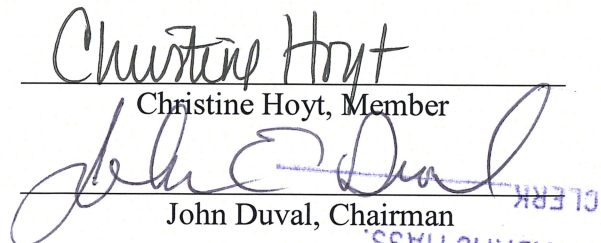 Christine Hoyt
Christine Hoyt, Member
John E Duval
John Duval, Chairman
CLERK
MASS.